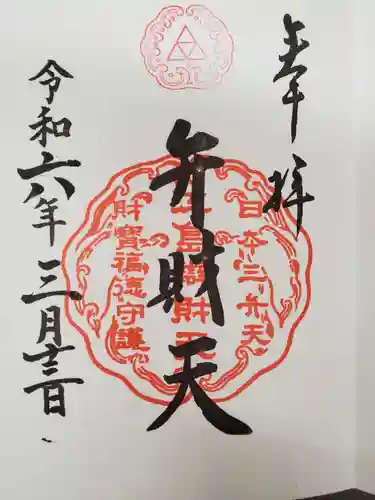 奉拝
弁財天
令和六年三月十三日
日本三弁天
江島辨財天
財寶福徳守護